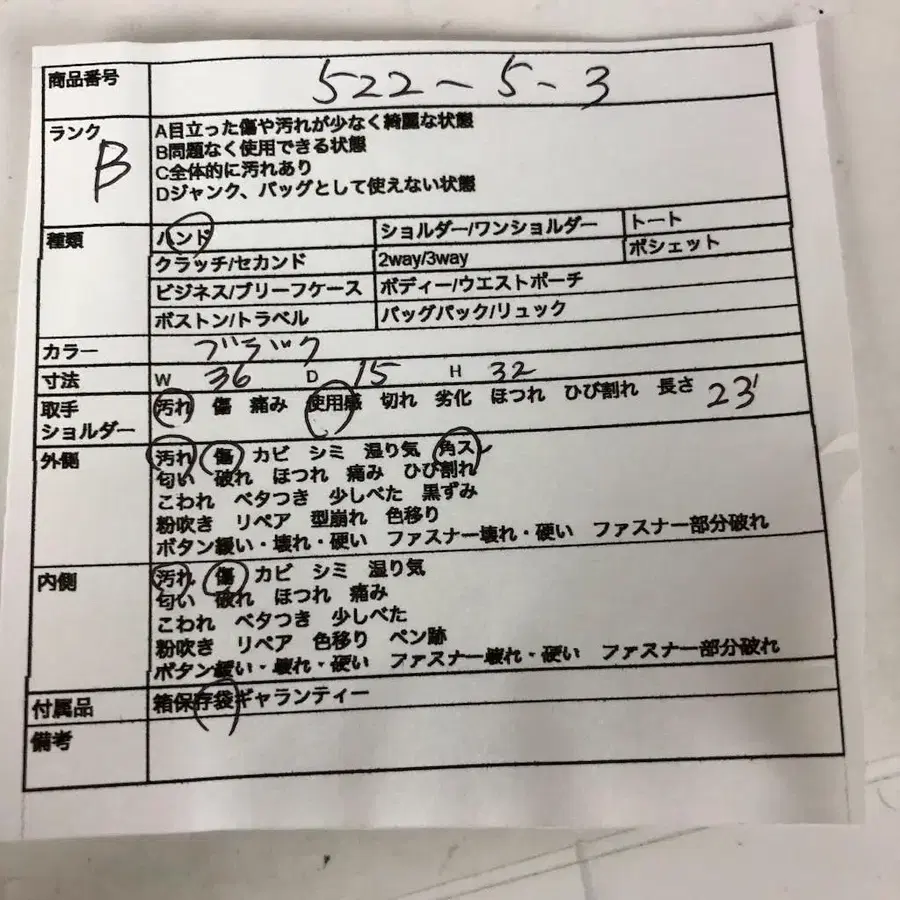 商品番号 522-5-3
ランク B
A目立った傷や汚れが少なく綺麗な状態
B問題なく使用できる状態
C全体的に汚れあり
Dジャンク、バッグとして使えない状態
種類 ハンド ショルダー/ワンショルダー トート
クラッチ/セカンド 2way/3way ポシェット
ビジネス/ブリーフケース ボディー/ウエストポーチ
ボストン/トラベル バッグパック/リュック
カラー ブラック
寸法 W 36 D 15 H 32
取手 汚れ 傷 痛み 使用感 切れ 劣化 ほつれ ひび割れ 長さ 23
ショルダー
外側 汚れ 傷 カビ シミ 湿り気 角ス
匂い 破れ ほつれ 痛み ひび割れ
こわれ ベタつき 少しべた 黒ずみ
粉吹き リペア 型崩れ 色移り
ボタン緩い・壊れ・硬い ファスナー壊れ・硬い ファスナー部分破れ
内側 汚れ 傷 カビ シミ 湿り気
匂い 破れ ほつれ 痛み
こわれ ベタつき 少しべた
粉吹き リペア 色移り ペン跡
ボタン緩い・壊れ・硬い ファスナー壊れ・硬い ファスナー部分破れ
付属品 箱保存袋ギャランティー
備考